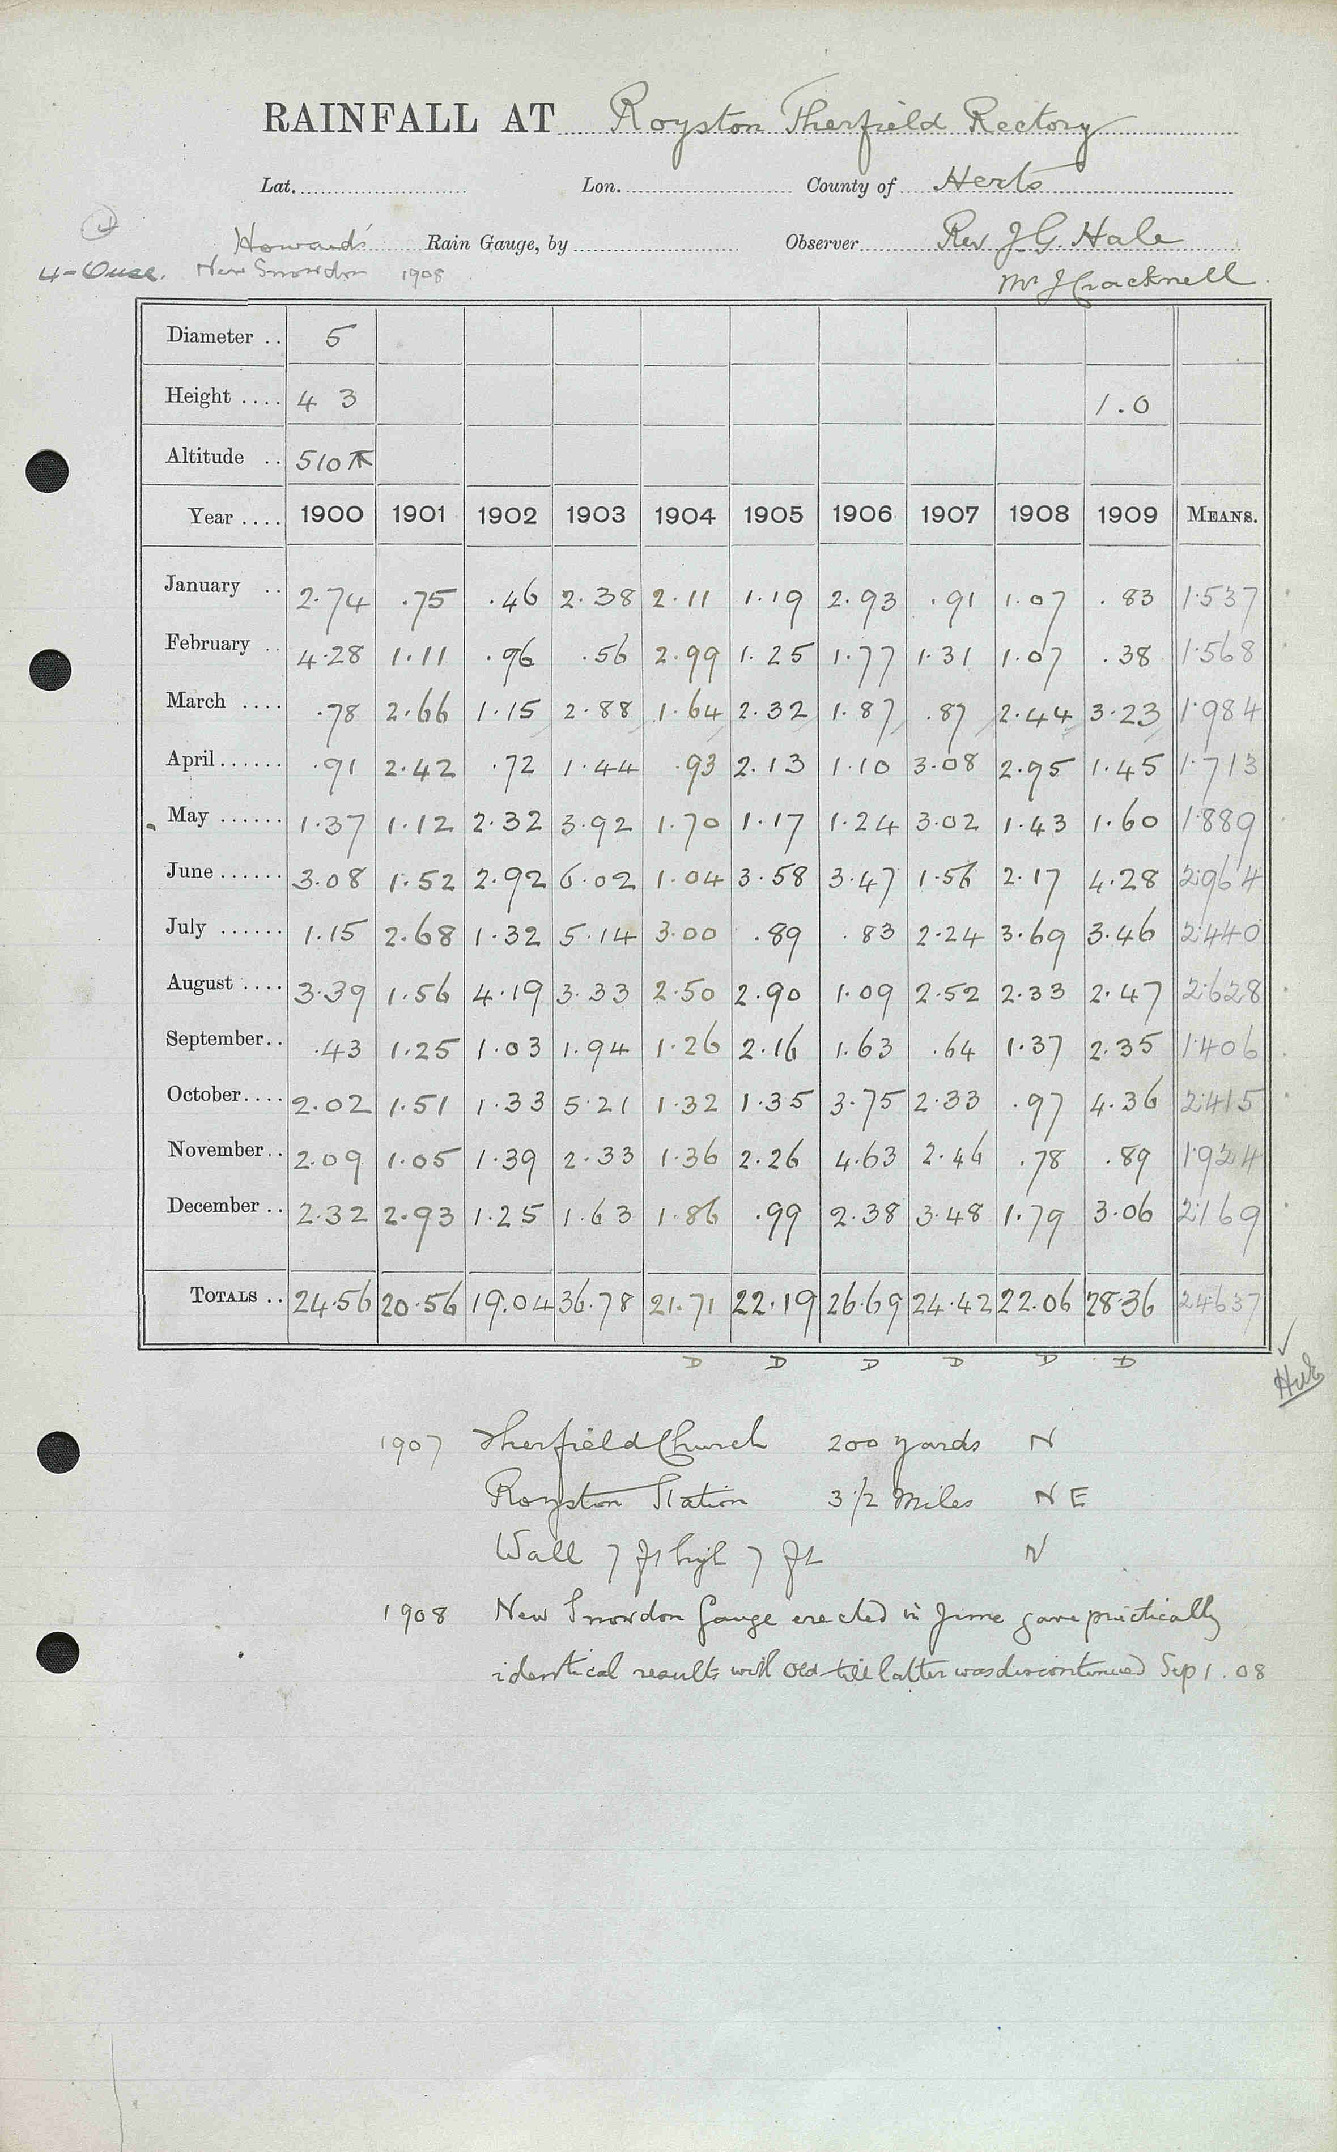 RAINFALL AT Royston Therfield Rectory
Lat. Lon. County of Herts
Howard's Rain Gauge, by Observer Rev J G Hale
4-Ouse. New Snowdon 1908 Mr J Cracknell
Diameter .. 5
Height .... 4 3 1.0
Altitude .. 510 ft
Year .... 1900 1901 1902 1903 1904 1905 1906 1907 1908 1909 MEANS.
January .. 2.74 .75 .46 2.38 2.11 1.19 2.93 .91 1.07 .83 1.537
February .. 4.28 1.11 .96 .56 2.99 1.25 1.77 1.31 1.07 .38 1.568
March .... .78 2.66 1.15 2.88 1.64 2.32 1.87 .87 2.44 3.23 1.984
April ...... .91 2.42 .72 1.44 .93 2.13 1.10 3.08 2.95 1.45 1.713
May ...... 1.37 1.12 2.32 3.92 1.70 1.17 1.24 3.02 1.43 1.60 1.889
June ...... 3.08 1.52 2.92 6.02 1.04 3.58 3.47 1.56 2.17 4.28 2.964
July ...... 1.15 2.68 1.32 5.14 3.00 .89 .83 2.24 3.69 3.46 2.440
August .... 3.39 1.56 4.19 3.33 2.50 2.90 1.09 2.52 2.33 2.47 2.628
September.. .43 1.25 1.03 1.94 1.26 2.16 1.63 .64 1.37 2.35 1.406
October.... 2.02 1.51 1.33 5.21 1.32 1.35 3.75 2.33 .97 4.36 2.415
November.. 2.09 1.05 1.39 2.33 1.36 2.26 4.63 2.46 .78 .89 1.924
December .. 2.32 2.93 1.25 1.63 1.86 .99 2.38 3.48 1.79 3.06 2.169
TOTALS .. 24.56 20.56 19.04 36.78 21.71 22.19 26.69 24.42 22.06 28.36 24.637
D D D D D D
1907 Therfield Church 200 yards N
Royston Station 3 1/2 Miles NE
Wall 7 ft high 7 ft N
1908 New Snowdon Gauge erected in June gave practically
identical results with old till latter was discontinued Sep 1. 08